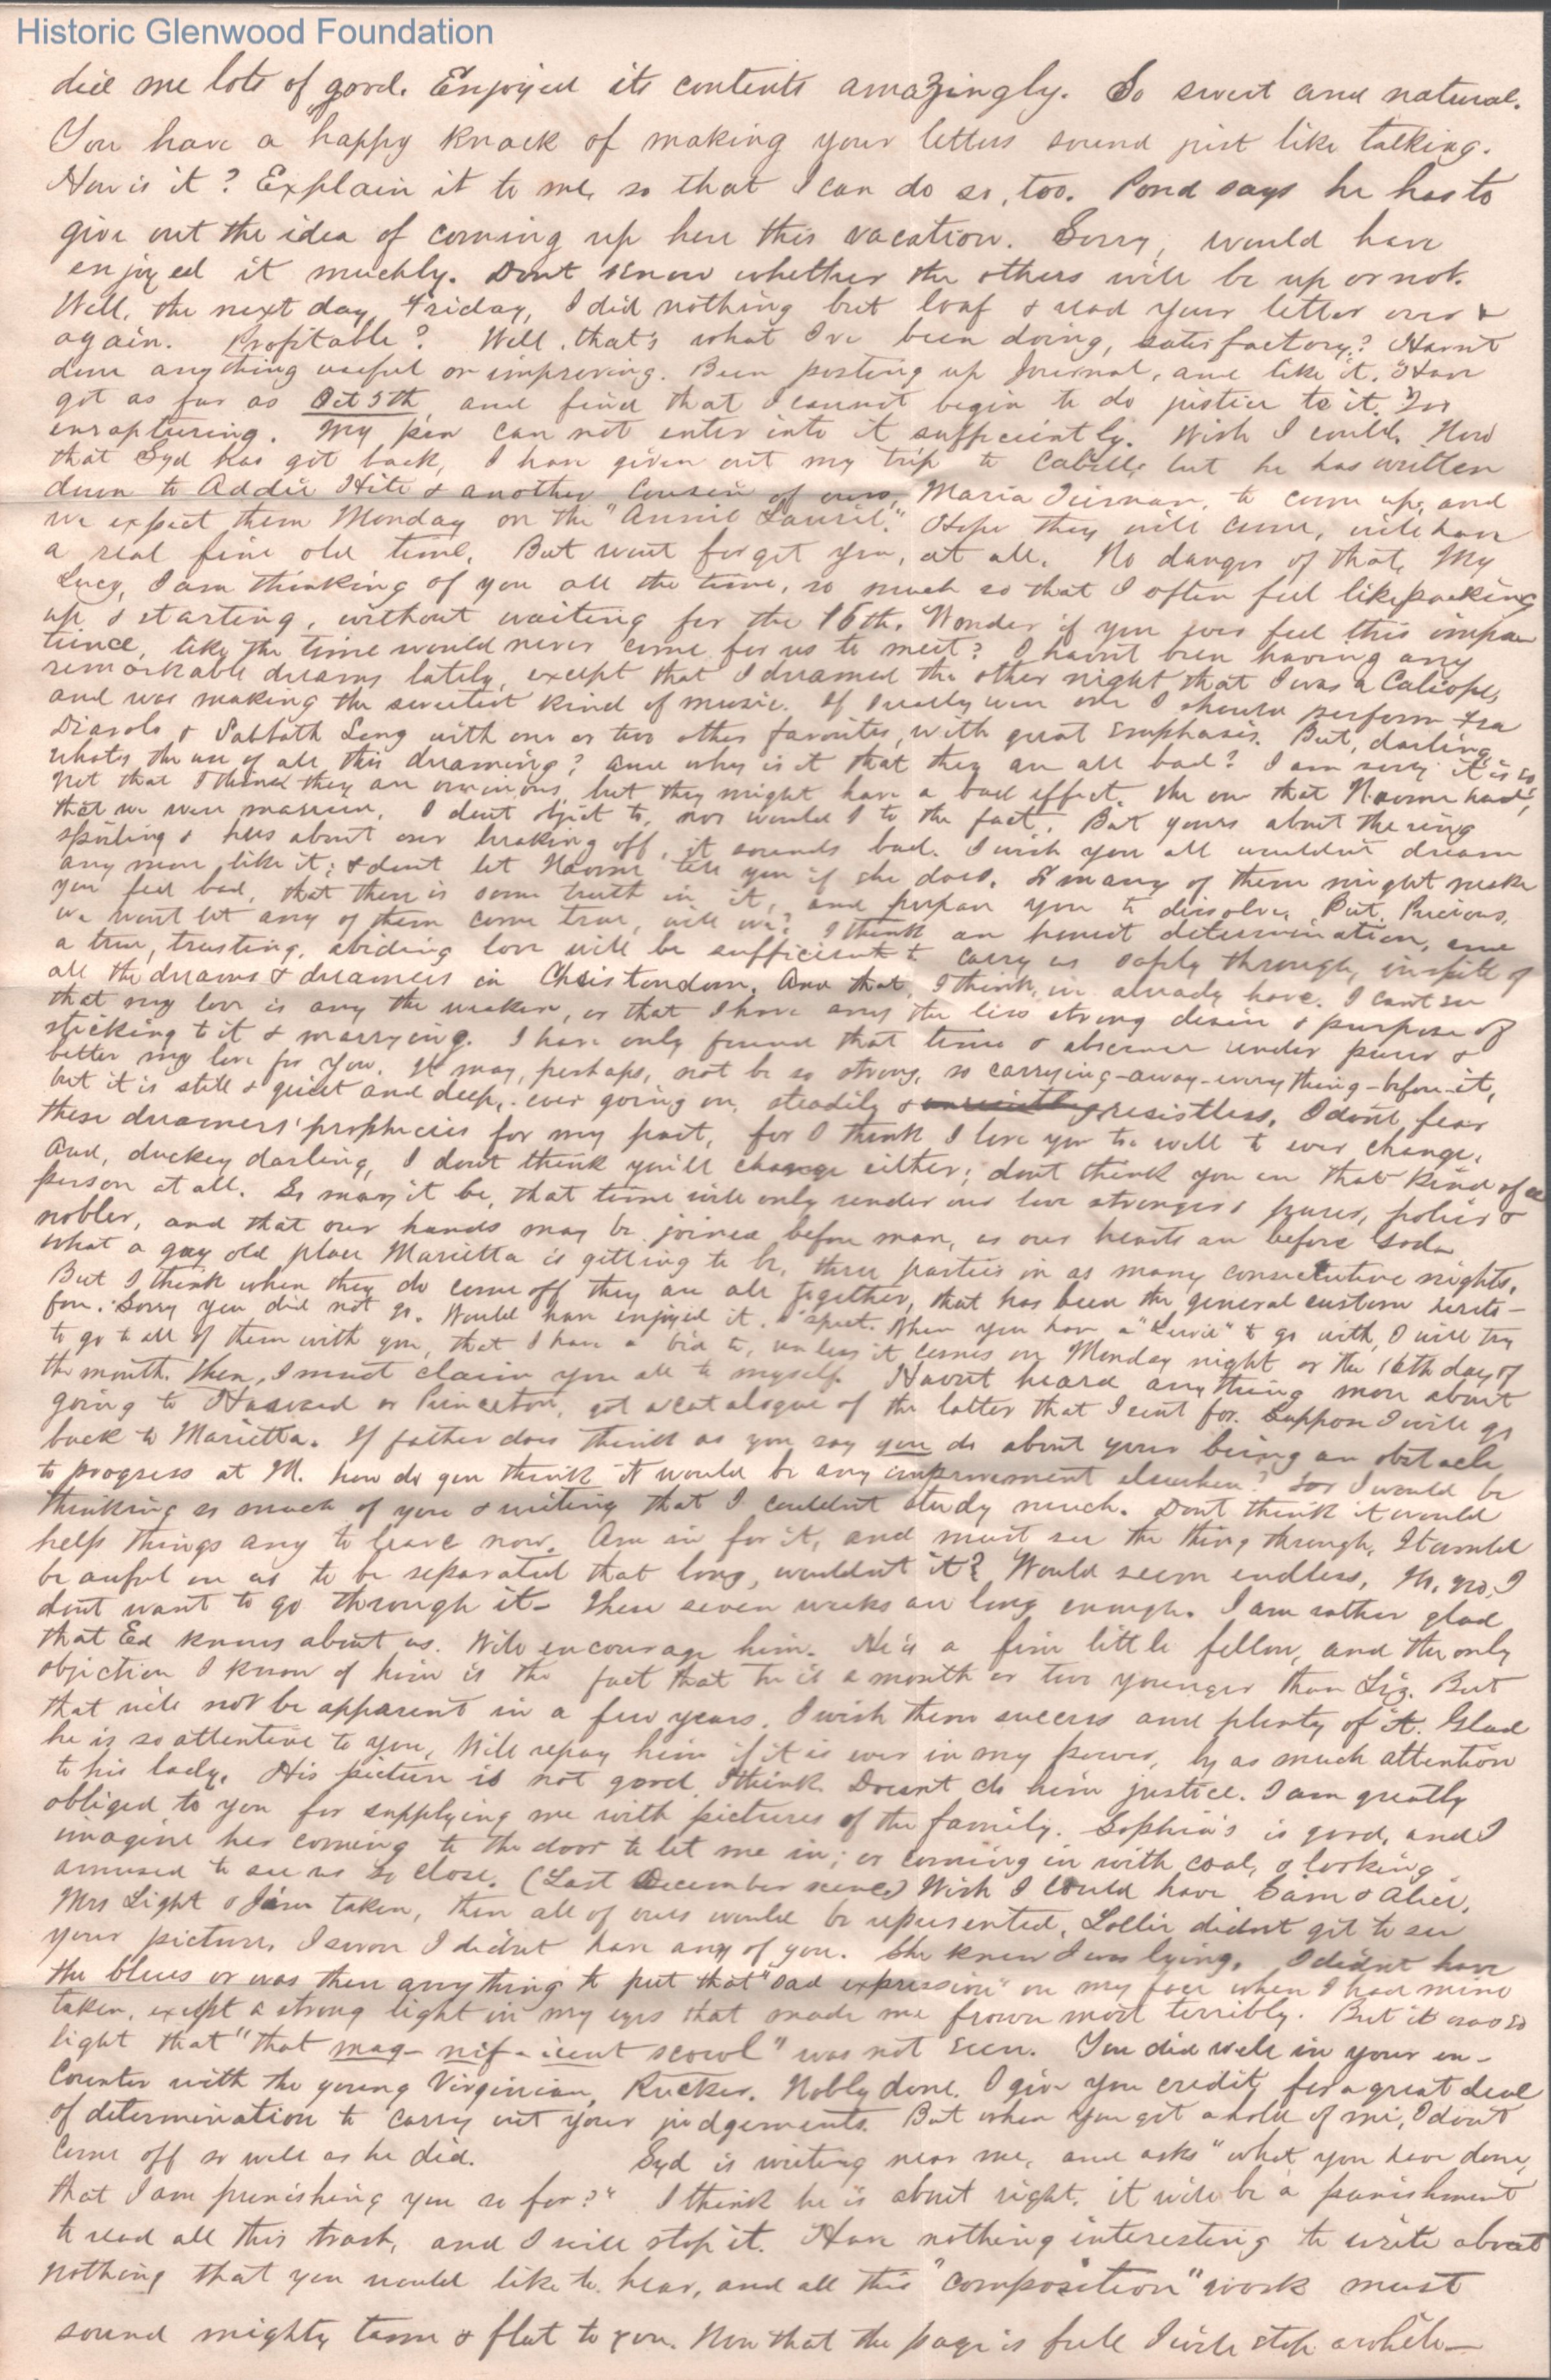 Historic Glenwood Foundation
did me lots of good. Enjoyed its contents amazingly. So sweet and natural.
You have a happy knack of making your letters sound just like talking.
How is it? Explain it to me, so that I can do so, too. Pond says he has to
give out the idea of coming up here this vacation. Sorry, would have
enjoyed it muchly. Dont know whether the others will be up or not.
Well, the next day, Friday, I did nothing but loaf & read your letter over &
again. Profitable? Well, that's what I've been doing, satisfactory? Havnt
done anything useful or improving. Been posting up Journal, and like it. Have
got as far as Oct 5th, and find that I cannot begin to do justice to it. Too
enrapturing. My pen can not enter into it sufficiently. Wish I could. Now
that Syd has got back, I have given out my trip to Cabell, but he has written
down to Addie Hite & another Cousin of ours, Maria Tiernan, to come up, and
we expect them Monday on the "Annie Laurie." Hope they will come, will have
a real fine old time. But wont forget you, at all. No danger of that. My
Lucy, I am thinking of you all the time, so much so that I often feel like packing
up & starting, without waiting for the 16th. Wonder if you ever feel this impa-
tience, like the time would never come for us to meet? I havn't been having any
remarkable dreams lately, except that I dreamed the other night that I was a Caliope,
and was making the sweetest kind of music. If I really were one I should perform Fra
Diavolo & Sabbath Song with one or two other favorites, with great emphasis. But, darling,
whats the use of all this dreaming? And why is it that they are all bad? I am sorry it is so,
Not that I think they are ominous, but they might have a bad effect. The one that Naomi had,
that we were married, I dont object to, nor would I to the fact. But yours about the ring
spoiling & hers about our breaking off, it sounds bad. I wish you all wouldnt dream
any more like it; & dont let Naomi tell you if she does. So many of them might make
you feel bad, that there is some truth in it, and prepare you to dissolve. But, Precious,
we wont let any of them come true, will we? I think an honest determination, and
a true, trusting, abiding love will be sufficient to carry us safely through, in spite of
all the dreams & dreamers in Christendom. And that, I think, we already have. I cant see
that my love is any the weaker, or that I have any the less strong desire & purpose of
sticking to it & marrying. I have only found that time & absence render purer &
better my love for You. It may, perhaps, not be so strong, so carrying-away-everything-before-it,
but it is still & quiet and deep, ever going on, steadily & resistless. I dont fear
these dreamers' prophecies for my part, for I think I love you too well to ever change.
And, duckey darling, I dont think you'll change either; dont think you are that kind of a
person at all. So may it be, that time will only render our love stronger & purer, holier &
nobler, and that our hands may be joined before man, as our hearts are before God.
What a gay old place Marietta is getting to be, three parties in as many consecutive nights.
But I think when they do come off they are all together, that has been the general custom hereto-
fore. Sorry you did not go. Would have enjoyed it. I 'spect. When you have a to go with, I will try
to go to all of them with you, that I have a bid to, unless it comes on Monday night or the 16th day of
the month. Then, I must claim you all to myself. Havnt heard anything more about
going to Harvard or Princeton, got a catalogue of the latter that I sent for. Suppose I will go
back to Marietta. If father does think as you say you do about your being an obstacle
to progress at M. how do you think it would be any improvement elsewhere? For I would be
thinking so much of you & writing that I couldnt study much. Dont think it would
help things any to leave now. Am in for it, and must see the thing through. It would
be awful on us to be separated that long, wouldnt it? Would seem endless. No, no, I
dont want to go through it. These seven weeks are long enough. I am rather glad
that Ed knows about us. Will encourage him. He is a fine little fellow, and the only
objection I know of him is the fact that he is a month or two younger than Liz. But
that will not be apparent in a few years. I wish them success and plenty of it. Glad
he is so attentive to you, Will repay him if it is ever in my power, by as much attention
to his lady. His picture is not good I think. Doesnt do him justice. I am greatly
obliged to you for supplying me with pictures of the family. Sophia's is good, and I
imagine her coming to the door to let me in; or coming in with coal, & looking
amused to see us so close. (Last December scene.) Wish I could have Sam & Alice,
Mrs Light & Jim taken, then all of ours would be represented. Lollie didnt get to see
your picture, I swore I didnt have any of you. She knew I was lying. I didnt have
the blues or was there anything to put that "sad expression" on my face when I had mine
taken, except a strong light in my eyes that made me frown most terribly. But it was so
light that "that mag-nif-icent scowl" was not seen. You did well in your en-
counter with the young Virginian, Rucker. Nobly done. I give you credit for a great deal
of determination to carry out your judgements. But when you get ahold of me, I dont
come off so well as he did. Syd is writing near me, and asks "what you have done,
that I am punishing you so for?" I think he is about right, it will be a punishment
to read all this trash, and I will stop it. Have nothing interesting to write about
nothing that you would like to hear, and all this "composition" work must
sound mighty tame & flat to you. Now that the page is full I will stop awhile—